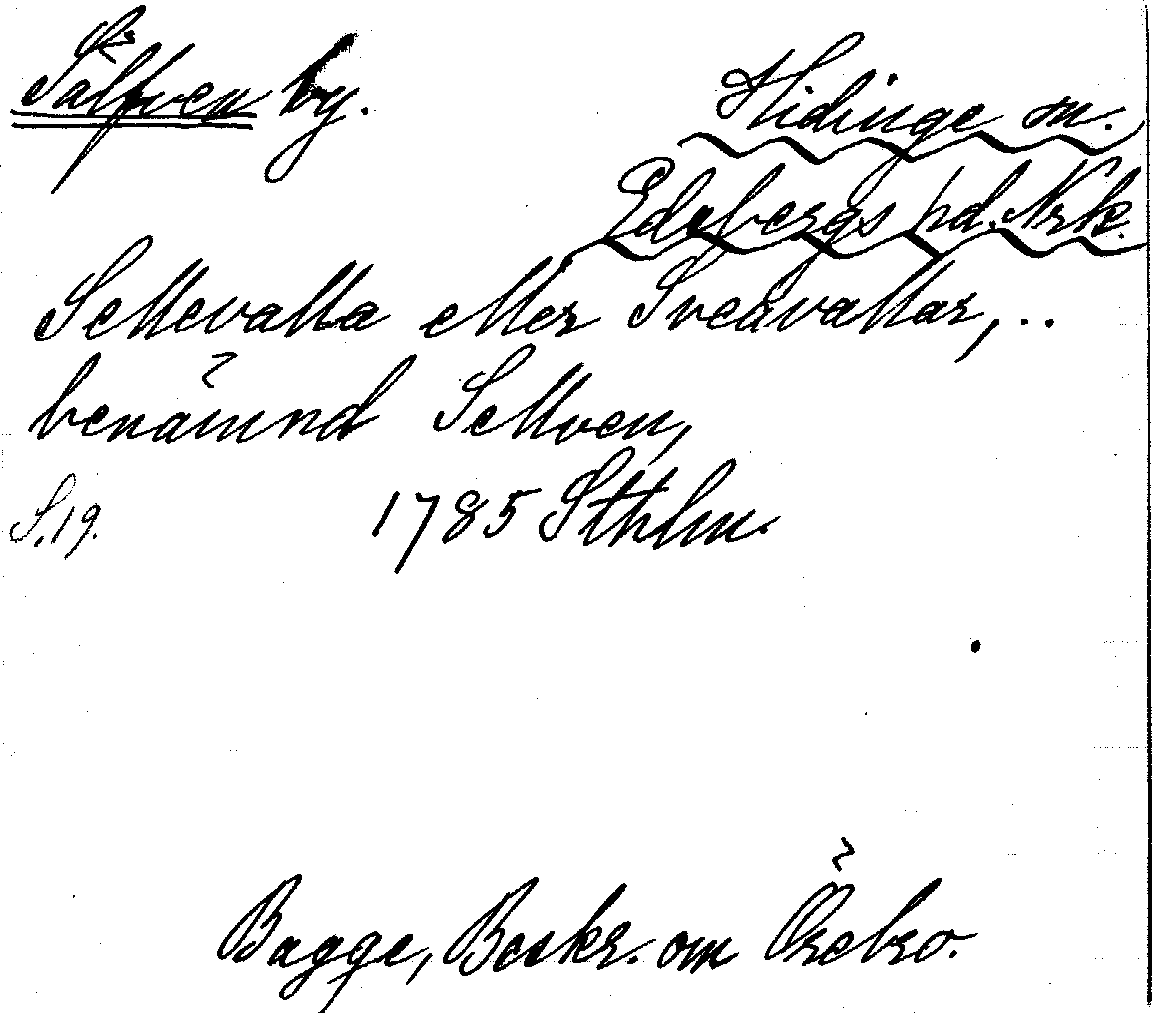 Sälfven by.
Hidinge sn.
Edsbergs hd. Nrk.
Sellevalla eller Sveavallar, ..
benämnd Sellven,
S. 19. 1785 Sthlm.
Bagge, Beskr. om Örebro.